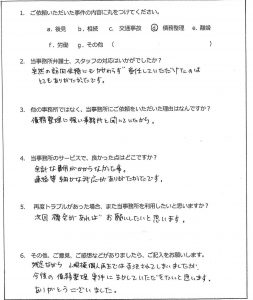 1. ご依頼いただいた事件の内容に丸をつけてください。
a. 後見 b. 相続 c. 交通事故 d. 債務整理 e. 離婚
f. 労働 g. その他 ( )
2. 当事務所弁護士、スタッフの対応はいかがでしたか？
突然の訪問依頼にもかかわらず受任していただけたのは
とてもありがたかったです。
3. 他の事務所ではなく、当事務所にご依頼をいただいた理由はなんですか？
債務整理に強い事務所と聞いていたから。
4. 当事務所のサービスで、良かった点はどこですか？
余計な費用がかからなかった事。
連絡等細かな対応がありがたかったです。
5. 再度トラブルがあった場合、また当事務所を利用したいと思いますか？
次回機会があれば お願いしたいと思います。
6. その他、ご意見、ご感想などがありましたら、ご記入をお願いします。
残念ながら 小規模個人再生では否決されてしまいましたが、
今後の債務整理 事件に いただきたいと思います。
ありがとうございました。